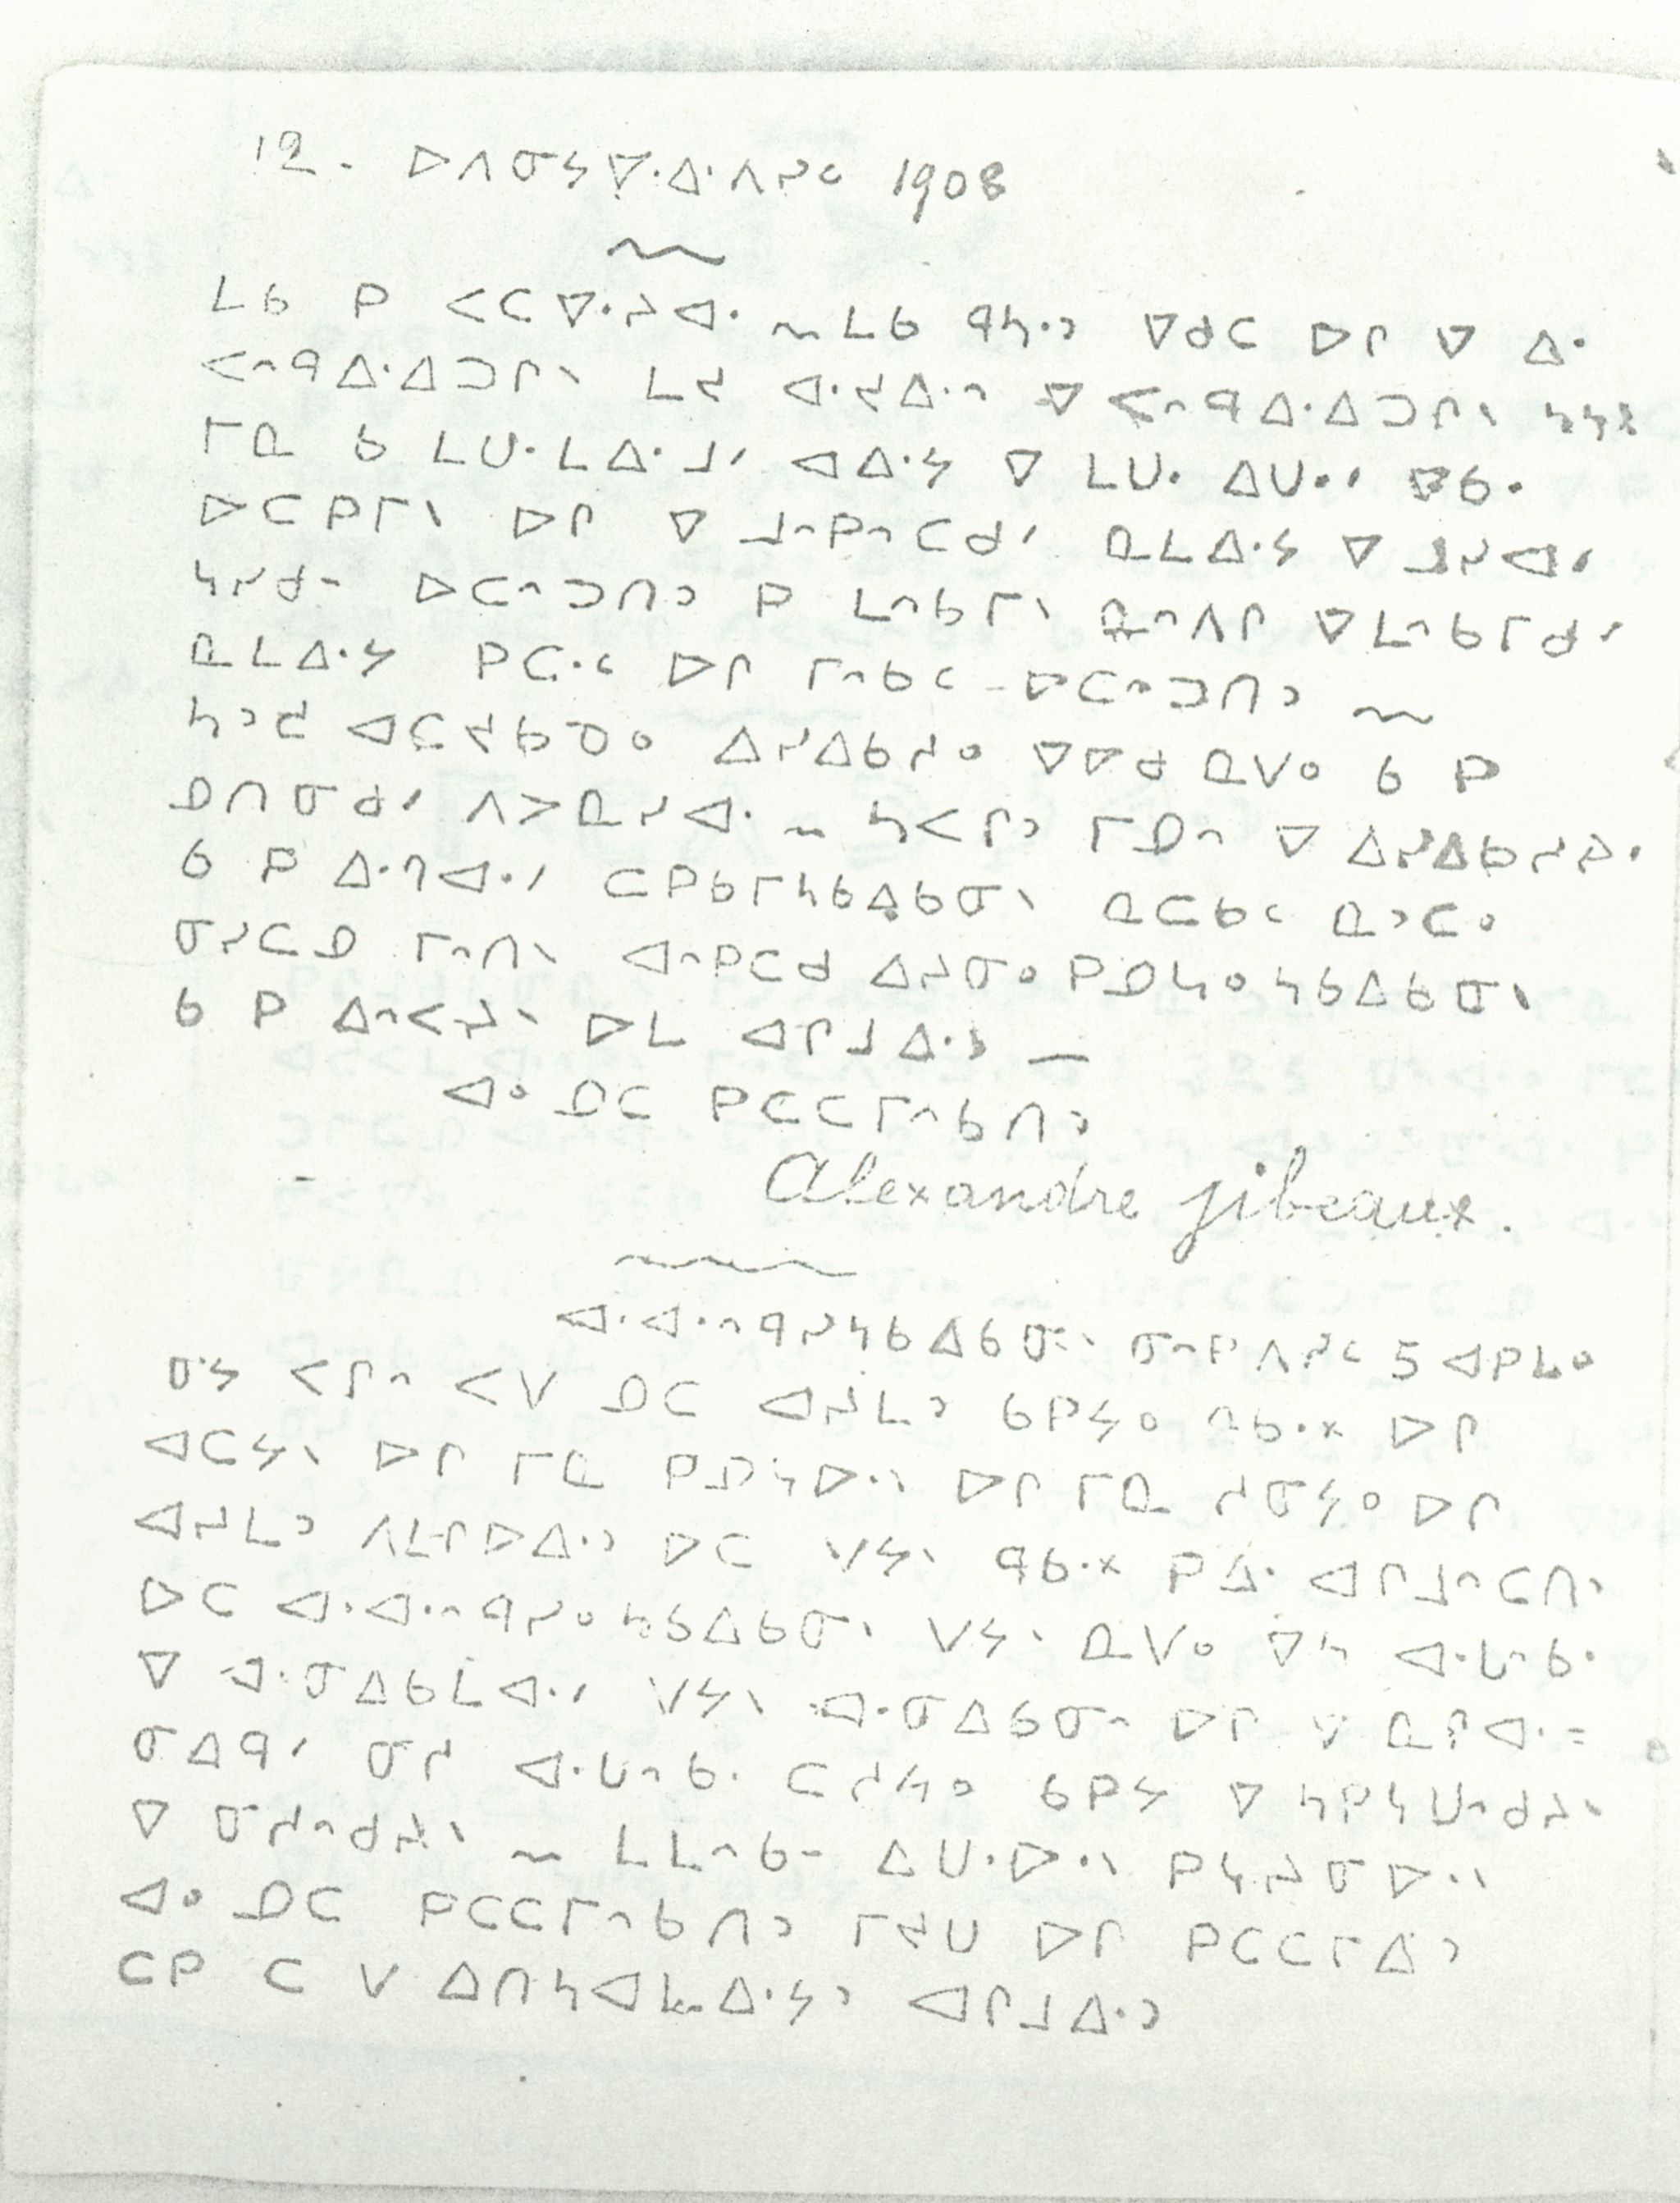 12. ᐅᐱᓂᔭᐁᐧᐃᐧᐱᓯᑦ 1908
ᒪᑲ ᑭ ᐸᑕᐁᐧᔨᐊᐧ ᒪᑲ ᑫᓴᐧᐣ ᐁᑯᑕ ᐅᒋ ᐁ ᐃᐧ
ᐸᐢᑫᐃᐧᐃᑐᒋᐠ ᒪᔪ ᐊᐧᔪᐃᐧᐢ ᐁ ᐸᐢᑫᐃᐧᐃᑐᒋᐠ
ᒥᓇ ᑲ ᒪᑌᐧᒪᐃᐧᒧᐟ ᐊᐃᐧᔭ ᐁ ᒪᑌᐧ ᐃᑌᐧᐟ ᐁᑲᐧ
ᐅᑕᑭᒥᐠ ᐅᒋ ᐁ ᒧᐢᑭᐢᑕᑯᐟ ᓇᒪᐃᐧᔭ ᐁ ᒧᓯᐊᐟ
ᓴᓯᑯᐨ ᐅᑕᐢᑐᑎᐣ ᑭ ᒪᐢᑲᒥᐠ ᓇᐢᐱᒋ ᐁᒪᐢᑲᒥᑯᐟ
ᓇᒪᐃᐧᔭ ᑭᑕᐧᑦ ᐅᒋ ᒥᐢᑲᑦ ᐅᑕᐢᑐᑎᐣ
ᓴᐣᑯ ᐊᑕᔪᑲᓄᐤ ᐃᓯᐃᑲᓱᐤ ᐁᐁᑯ ᓇᐯᐤ ᑲ ᑭ
ᓄᑎᓂᑯᐟ ᐱᐳᓇᓯᐊᐧ ᓴᐸᒋᐣ ᒥᓄᐢ ᐁ ᐃᓯᐃᑲᓱᔨᐧ
ᑲ ᑭ ᐃᐧᒉᐊᐧᐟ ᑕᑭᑲᒥᓴᑲᐃᑲᓂᐠ ᓇᑕᑲᑦ ᓇᐣᑕᐤ
ᓂᓯᑕᓄ ᒥᐢᑎᐠ ᐊᐢᑭᑕᑯ ᐃᔨᓂᐤ ᑭᓄᓴᐤᓴᑲᐃᑲᓂᐠ
ᑲ ᑭ ᐃᐢᐸᔨᐠ ᐅᒪ ᐊᒋᒧᐃᐧᐣ
ᐊᐤ ᓄᑕ ᑭᑕᑕᒥᐢᑲᑎᐣ
Alexandre jibeaux.
ᐊᐧᐊᐧᐢᑫᓯᓴᑲᐃᑲᓂᐠ ᓂᐢᑭᐱᓯᑦ 5 ᐊᑭᒪᐤ
ᓂᔭ ᐸᒋᐢ ᐸᐯ ᓄᑕ ᐊᔨᒪᐣ ᑲᑭᔭᐤ ᑫᑲᐧᕽ ᐅᒋ
ᐊᑕᔭᐠ ᐅᒋ ᒥᓇ ᑭᓄᓴᐅᐧᐠ ᐅᒋ ᒥᓇ ᓱᓂᔭᐤ ᐅᒋ
ᐊᔨᒪᐣ ᐱᒪᒋᐅᐃᐧᐣ ᐅᑕ ᐯᔭᐠ ᑫᑲᐧᕽ ᑭᐃᐧ ᐊᒋᒧᐢᑕᑎᐣ
ᐅᑕ ᐊᐧᐊᐧᐢᑫᓯᐤᓴᑲᐃᑲᓂᐠ ᐯᔭᐠ ᓇᐯᐤ ᐁᓴ ᐊᐧᑌᐢᑲᐧ
ᐁ ᐊᐧᓂᐃᑲᒪᐊᐧᐟ ᐯᔭᐠ ᐊᐧᓂᐃᑲᓂᐢ ᐅᒋ ᐁ ᓇᒋᐊᐧ=
ᓂᐃᑫᐟ ᓂᓱ ᐊᐧᑌᐢᑲᐧ ᑕᓱᓴᐤ ᑲᑭᔭ ᐁ ᓴᑭᓴᑌᐢᑯᔨᐟ
ᐁ ᓂᓱᐢᑯᔨᐠ ᒪᒪᐢᑲᐨ ᐃᑌᐧᐅᐧᐠ ᑭᓴᔨᓂᐅᐧᐠ
ᐊᐤ ᓄᑕ ᑭᑕᑕᒥᐢᑲᑎᐣ ᒥᔪᑌ ᐅᒋ ᑭᑕᑕᒥᐃᐣ
ᑕᑭ ᑕ ᐯ ᐃᑎᓴᐊᒪᐃᐧᔭᐣ ᐊᒋᒧᐃᐧᐣ